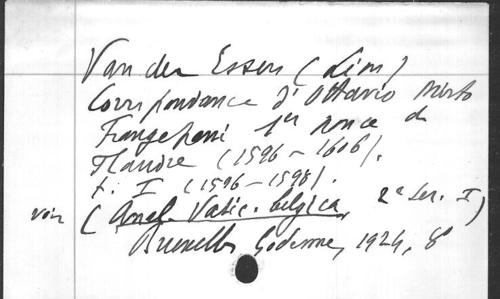 Van der Essen (Léon)
Correspondance d'Ottavio Mirto
Frangipani 1er nonce de
Flandre (1596-1606).
t. I (1596-1598).
voir (Anal. Vatic. belgica, 2e Ser. I)
Bruxelles, Goemaere, 1924, 8°